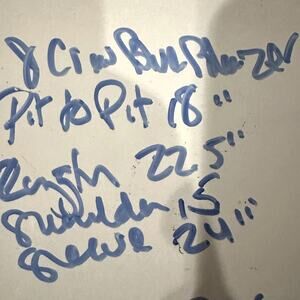 J Crew Blue Blazer
Pit to Pit 18"
Length 22.5"
Shoulder 15
Sleeve 24"